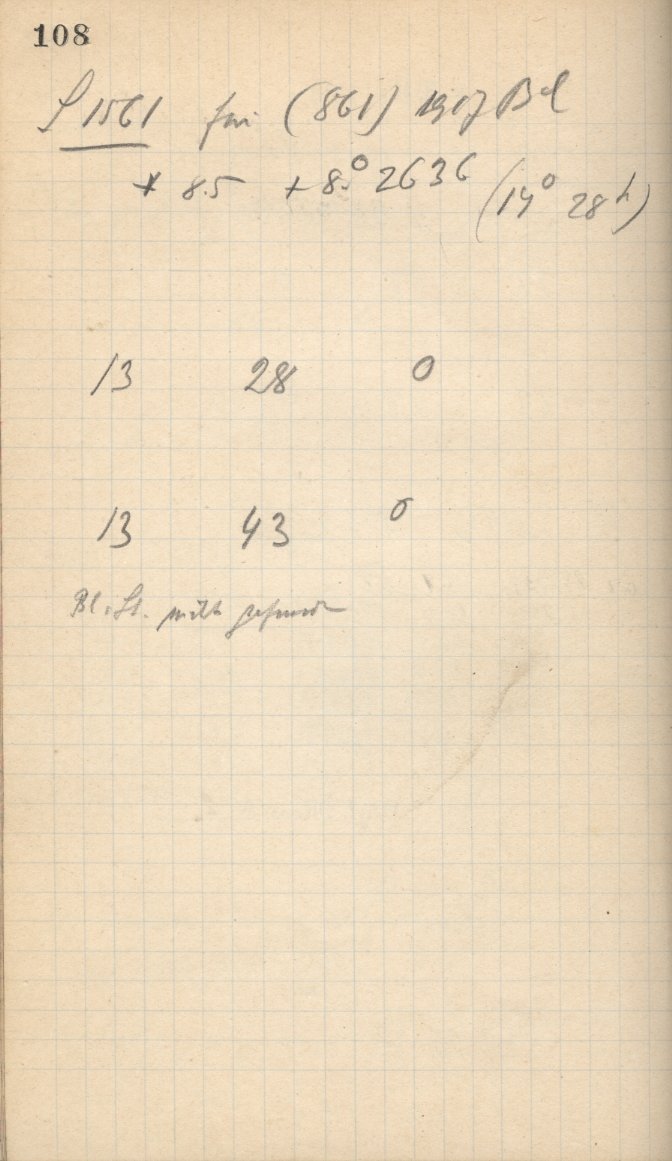 108
S 1561 für (861) 1917 Bd
* 8.5 +8.° 2636 (14° 28h)
13 28 0
13 43 0
Bl. St. nicht gefunden